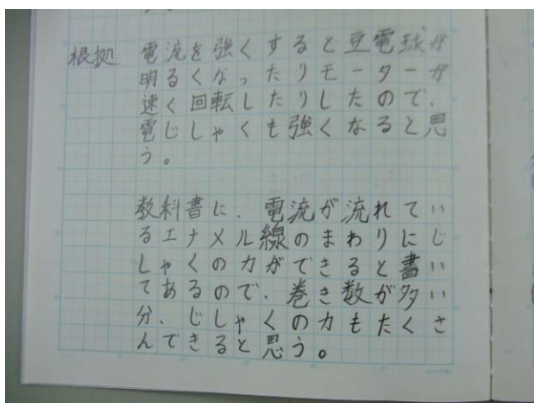 根拠 電流を強くすると豆電球が
明るくなったりモーターが
速く回転したりしたので、
電じしゃくも強くなると思
う。
教科書に、電流が流れてい
るエナメル線のまわりにじ
しゃくの力ができると書い
てあるので、巻き数が多い
分、じしゃくの力もたくさ
んできると思う。